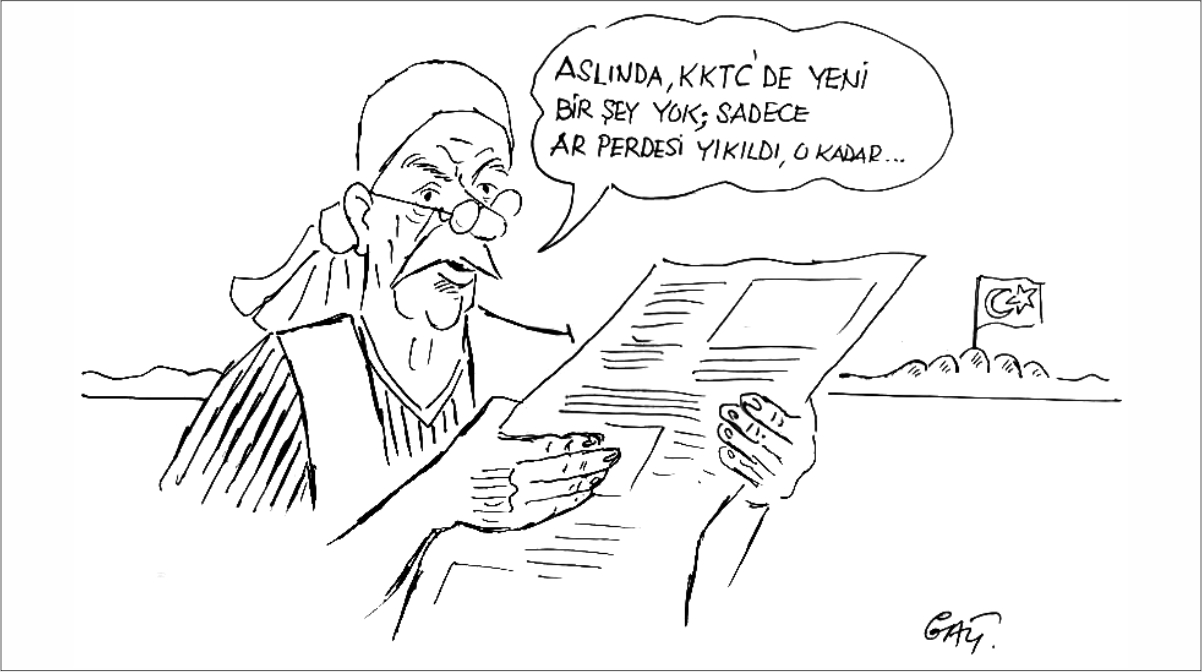 ASLINDA, KKTC'DE YENİ
BİR ŞEY YOK; SADECE
AR PERDESİ YIKILDI, O KADAR...